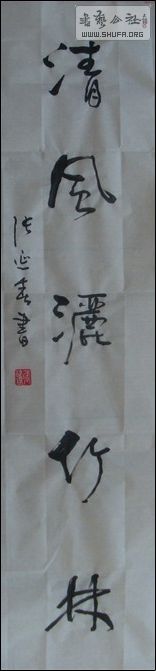 清風灑竹林
张延春書
书艺公社
WWW.SHUFA.ORG